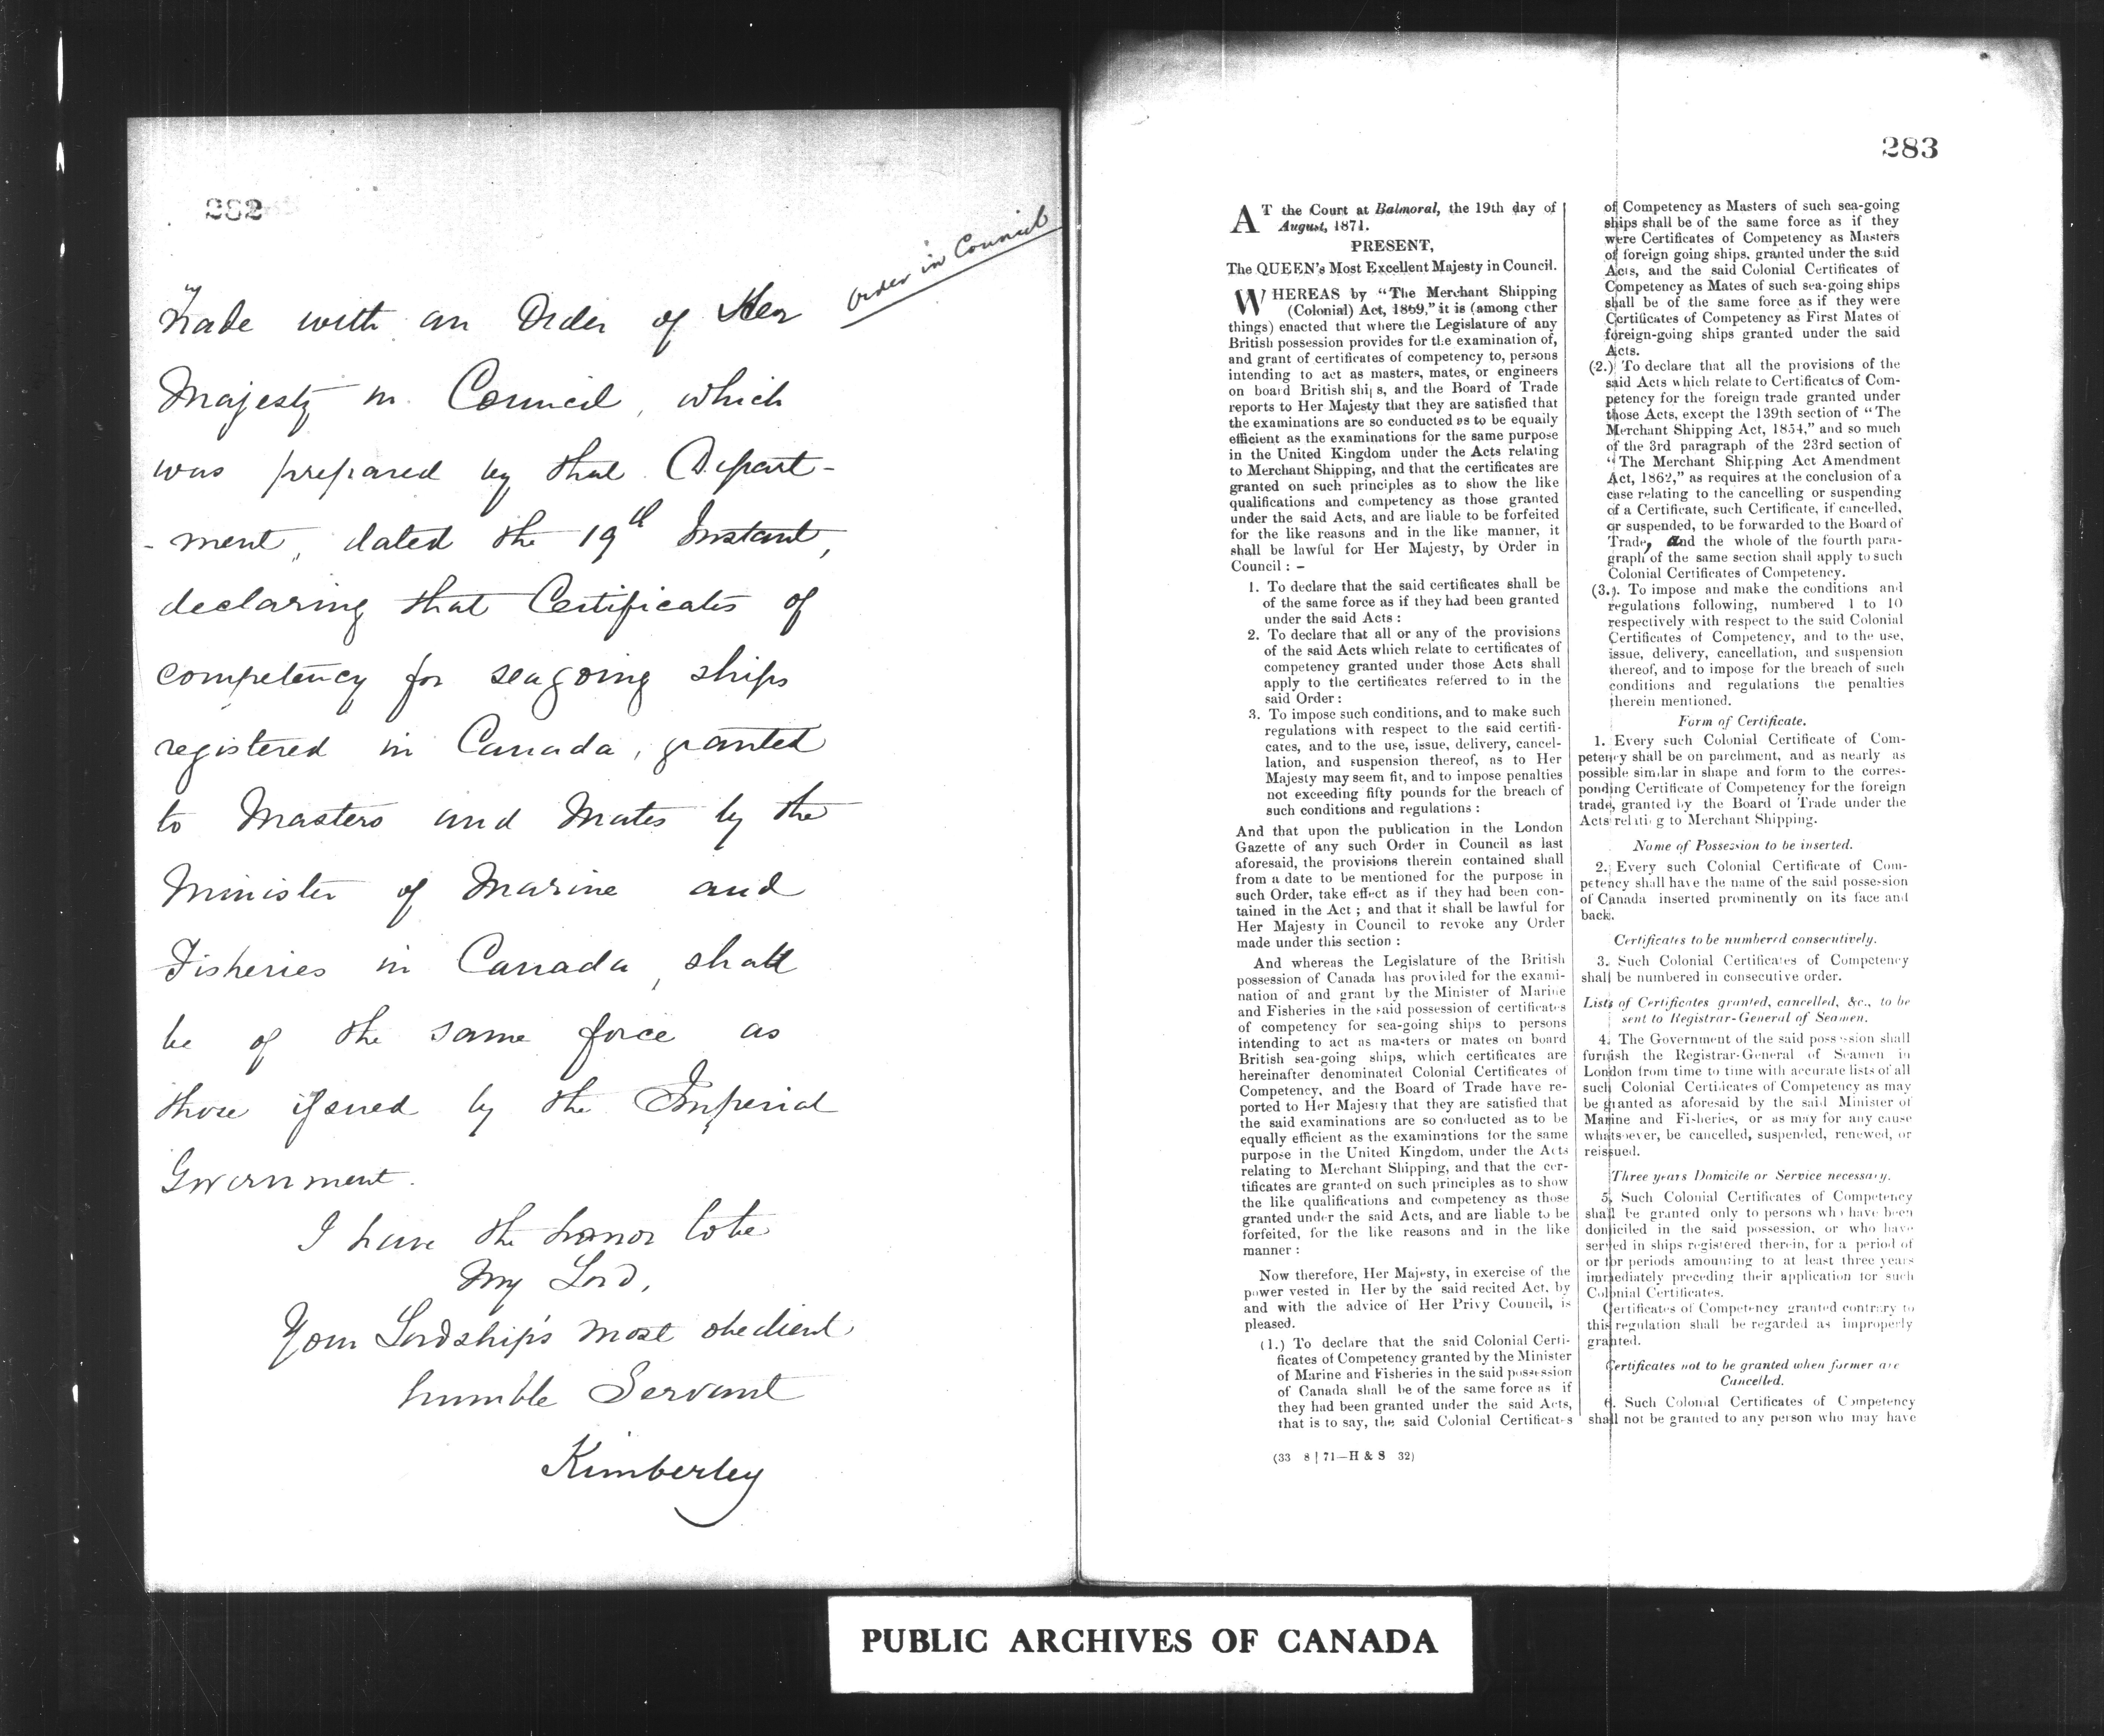 282
Order in Council
Trade with an Order of Her
Majesty in Council, which
was prepared by that Depart-
-ment, dated the 19th Instant,
declaring that Certificates of
competency for seagoing ships
registered in Canada, granted
to Masters and Mates by the
Minister of Marine and
Fisheries in Canada, shall
be of the same force as
those issued by the Imperial
Government.
I have the honor to be
My Lord,
Your Lordship's most obedient
humble Servant
Kimberley
283
AT the Court at Balmoral, the 19th day of
August, 1871.
PRESENT,
The QUEEN's Most Excellent Majesty in Council.
WHEREAS by "The Merchant Shipping
(Colonial) Act, 1869," it is (among other
things) enacted that where the Legislature of any
British possession provides for the examination of,
and grant of certificates of competency to, persons
intending to act as masters, mates, or engineers
on board British ships, and the Board of Trade
reports to Her Majesty that they are satisfied that
the examinations are so conducted as to be equally
efficient as the examinations for the same purpose
in the United Kingdom under the Acts relating
to Merchant Shipping, and that the certificates are
granted on such principles as to show the like
qualifications and competency as those granted
under the said Acts, and are liable to be forfeited
for the like reasons and in the like manner, it
shall be lawful for Her Majesty, by Order in
Council : –
1. To declare that the said certificates shall be
of the same force as if they had been granted
under the said Acts :
2. To declare that all or any of the provisions
of the said Acts which relate to certificates of
competency granted under those Acts shall
apply to the certificates referred to in the
said Order :
3. To impose such conditions, and to make such
regulations with respect to the said certifi-
cates, and to the use, issue, delivery, cancel-
lation, and suspension thereof, as to Her
Majesty may seem fit, and to impose penalties
not exceeding fifty pounds for the breach of
such conditions and regulations :
And that upon the publication in the London
Gazette of any such Order in Council as last
aforesaid, the provisions therein contained shall
from a date to be mentioned for the purpose in
such Order, take effect as if they had been con-
tained in the Act ; and that it shall be lawful for
Her Majesty in Council to revoke any Order
made under this section :
And whereas the Legislature of the British
possession of Canada has provided for the exami-
nation of and grant by the Minister of Marine
and Fisheries in the said possession of certificates
of competency for sea-going ships to persons
intending to act as masters or mates on board
British sea-going ships, which certificates are
hereinafter denominated Colonial Certificates of
Competency, and the Board of Trade have re-
ported to Her Majesty that they are satisfied that
the said examinations are so conducted as to be
equally efficient as the examinations for the same
purpose in the United Kingdom, under the Acts
relating to Merchant Shipping, and that the cer-
tificates are granted on such principles as to show
the like qualifications and competency as those
granted under the said Acts, and are liable to be
forfeited, for the like reasons and in the like
manner :
Now therefore, Her Majesty, in exercise of the
power vested in Her by the said recited Act, by
and with the advice of Her Privy Council, is
pleased.
(1.) To declare that the said Colonial Certi-
ficates of Competency granted by the Minister
of Marine and Fisheries in the said possession
of Canada shall be of the same force as if
they had been granted under the said Acts,
that is to say, the said Colonial Certificates
(33 8 | 71—H & S 32)
of Competency as Masters of such sea-going
ships shall be of the same force as if they
were Certificates of Competency as Masters
of foreign going ships, granted under the said
Acts, and the said Colonial Certificates of
Competency as Mates of such sea-going ships
shall be of the same force as if they were
Certificates of Competency as First Mates of
foreign-going ships granted under the said
Acts.
(2.) To declare that all the provisions of the
said Acts which relate to Certificates of Com-
petency for the foreign trade granted under
those Acts, except the 139th section of "The
Merchant Shipping Act, 1854," and so much
of the 3rd paragraph of the 23rd section of
"The Merchant Shipping Act Amendment
Act, 1862," as requires at the conclusion of a
case relating to the cancelling or suspending
of a Certificate, such Certificate, if cancelled,
or suspended, to be forwarded to the Board of
Trade, and the whole of the fourth para-
graph of the same section shall apply to such
Colonial Certificates of Competency.
(3.). To impose and make the conditions and
regulations following, numbered 1 to 10
respectively with respect to the said Colonial
Certificates of Competency, and to the use,
issue, delivery, cancellation, and suspension
thereof, and to impose for the breach of such
conditions and regulations the penalties
therein mentioned.
Form of Certificate.
1. Every such Colonial Certificate of Com-
petency shall be on parchment, and as nearly as
possible similar in shape and form to the corres-
ponding Certificate of Competency for the foreign
trade, granted by the Board of Trade under the
Acts relating to Merchant Shipping.
Name of Possession to be inserted.
2. Every such Colonial Certificate of Com-
petency shall have the name of the said possession
of Canada inserted prominently on its face and
back.
Certificates to be numbered consecutively.
3. Such Colonial Certificates of Competency
shall be numbered in consecutive order.
Lists of Certificates granted, cancelled, &c., to be
sent to Registrar-General of Seamen.
4. The Government of the said possession shall
furnish the Registrar-General of Seamen in
London from time to time with accurate lists of all
such Colonial Certificates of Competency as may
be granted as aforesaid by the said Minister of
Marine and Fisheries, or as may for any cause
whatsoever, be cancelled, suspended, renewed, or
reissued.
Three years Domicile or Service necessary.
5. Such Colonial Certificates of Competency
shall be granted only to persons who have been
domiciled in the said possession, or who have
served in ships registered therein, for a period of
or for periods amounting to at least three years
immediately preceding their application for such
Colonial Certificates.
Certificates of Competency granted contrary to
this regulation shall be regarded as improperly
granted.
Certificates not to be granted when former are
Cancelled.
6. Such Colonial Certificates of Competency
shall not be granted to any person who may have
PUBLIC ARCHIVES OF CANADA